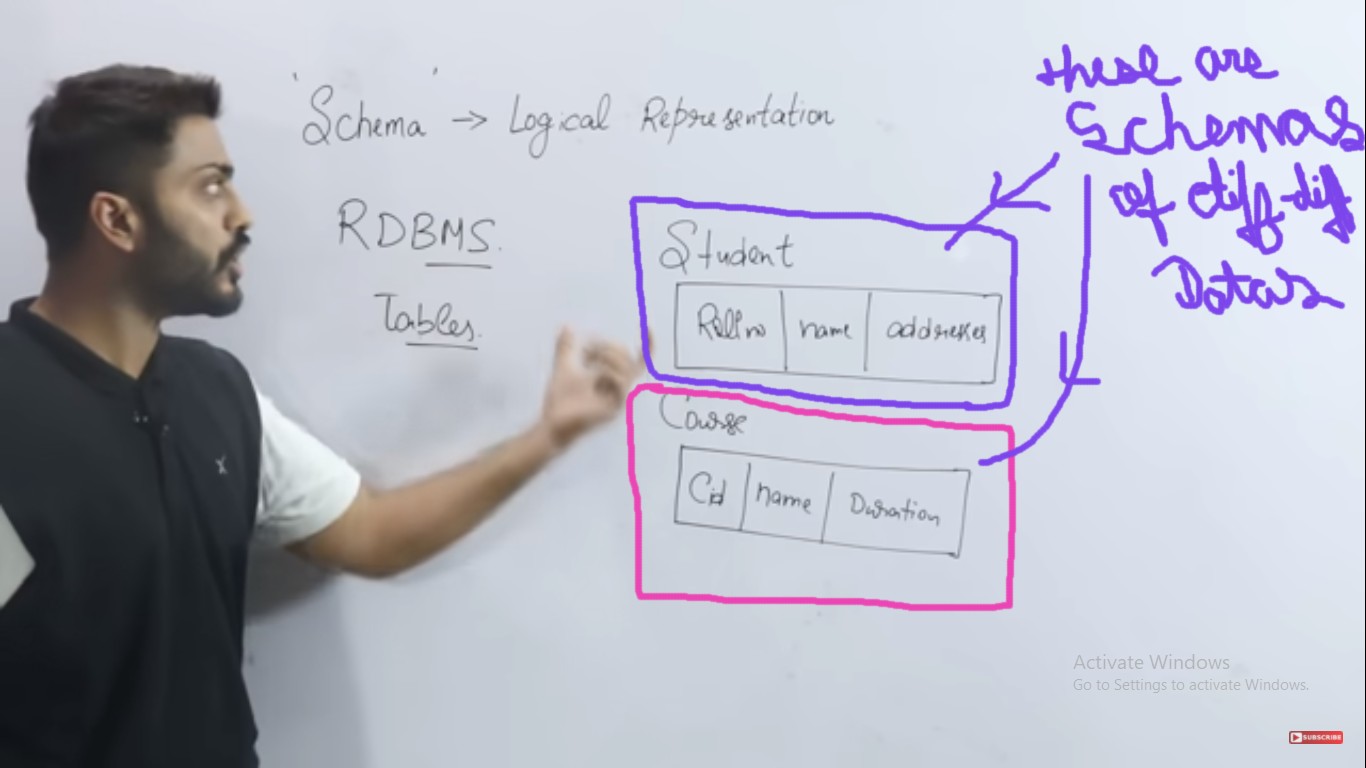 'Schema' → Logical Representation
RDBMS.
Tables.
Student
Rollno name addresses
Course
Cid name Duration
these are
Schemas
of diff-diff
Datas
Activate Windows
Go to Settings to activate Windows.
SUBSCRIBE